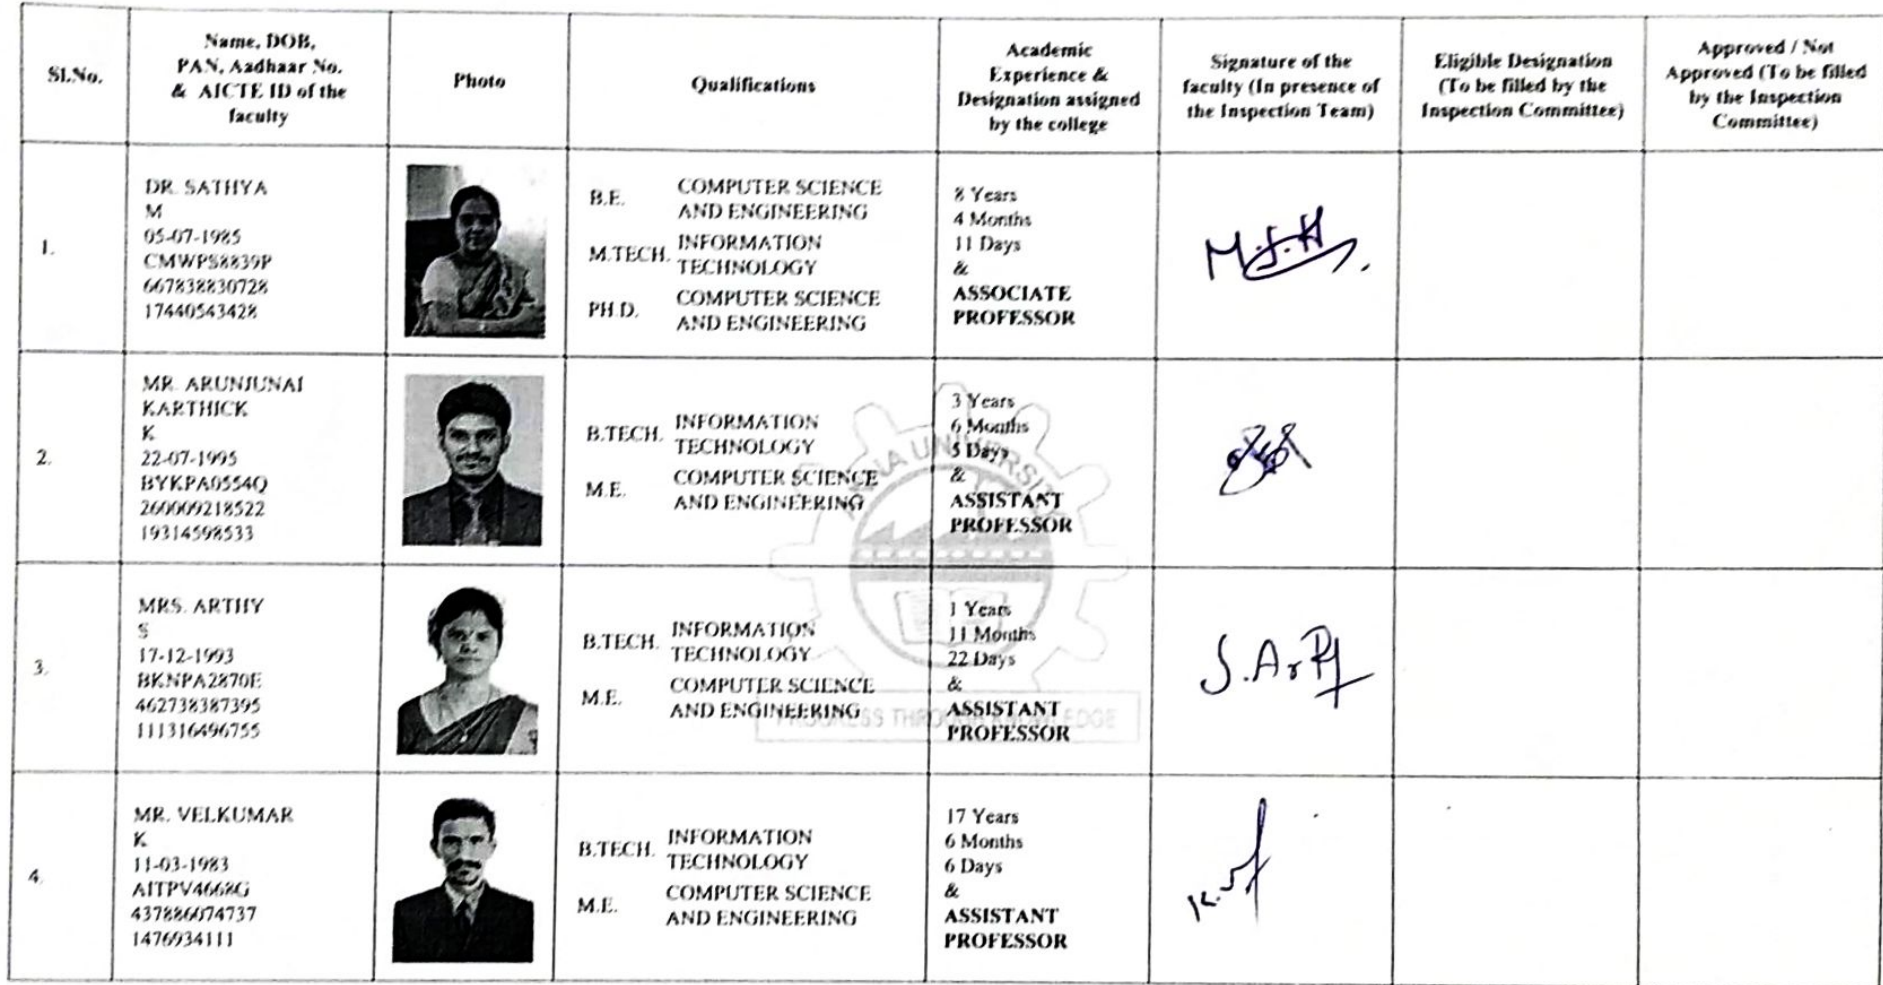 Sl.No.
Name, DOB,
PAN, Aadhaar No.
& AICTE ID of the
faculty
Photo
Qualifications
Academic
Experience &
Designation assigned
by the college
Signature of the
faculty (In presence of
the Inspection Team)
Eligible Designation
(To be filled by the
Inspection Committee)
Approved / Not
Approved (To be filled
by the Inspection
Committee)
1.
DR. SATHYA
M
05-07-1985
CMWPS8839P
667838830728
17440543428
B.E. COMPUTER SCIENCE
AND ENGINEERING
M.TECH. INFORMATION
TECHNOLOGY
PH.D. COMPUTER SCIENCE
AND ENGINEERING
8 Years
4 Months
11 Days
&
ASSOCIATE
PROFESSOR
2.
MR. ARUNJUNAI
KARTHICK
K
22-07-1995
BYKPA0554Q
260009218522
19314598533
B.TECH. INFORMATION
TECHNOLOGY
M.E. COMPUTER SCIENCE
AND ENGINEERING
3 Years
6 Months
5 Days
&
ASSISTANT
PROFESSOR
3.
MRS. ARTHY
S
17-12-1993
BKNPA2870E
462738387395
111316496755
B.TECH. INFORMATION
TECHNOLOGY
M.E. COMPUTER SCIENCE
AND ENGINEERING
1 Years
11 Months
22 Days
&
ASSISTANT
PROFESSOR
4.
MR. VELKUMAR
K
11-03-1983
AITPV4668G
437886074737
1476934111
B.TECH. INFORMATION
TECHNOLOGY
M.E. COMPUTER SCIENCE
AND ENGINEERING
17 Years
6 Months
6 Days
&
ASSISTANT
PROFESSOR
ANNA UNIVERSITY
PROGRESS THROUGH KNOWLEDGE